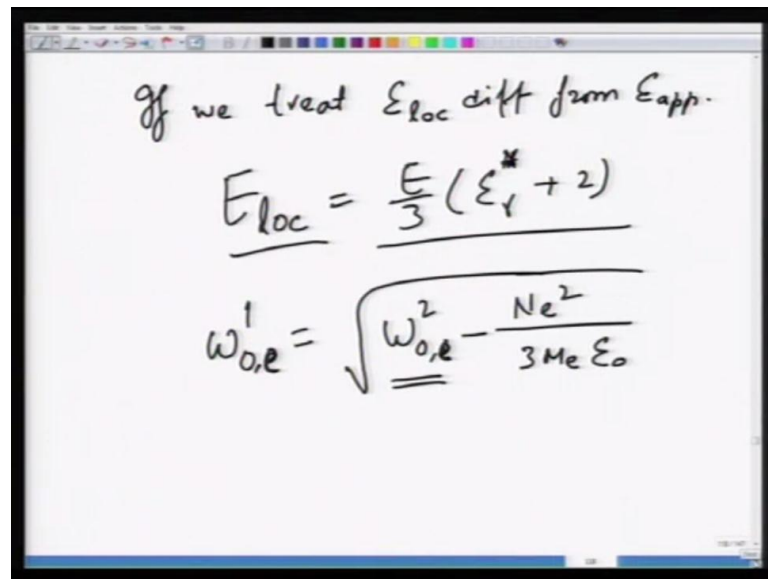 If we treat ε_loc diff from ε_app.
E_loc = E/3 (ε_r* + 2)
ω'_0,e = √(ω²_0,e − Ne²/3Meε₀)